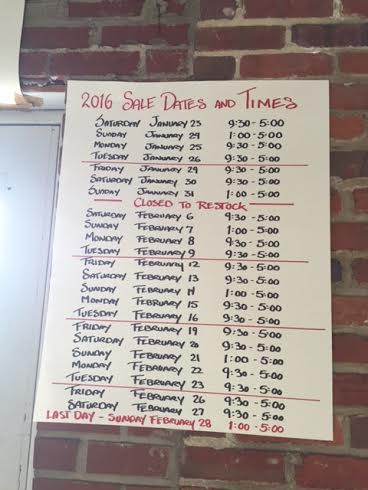 2016 SALE DATES AND TIMES
SATURDAY JANUARY 23 9:30 - 5:00
SUNDAY JANUARY 24 1:00 - 5:00
MONDAY JANUARY 25 9:30 - 5:00
TUESDAY JANUARY 26 9:30 - 5:00
FRIDAY JANUARY 29 9:30 - 5:00
SATURDAY JANUARY 30 9:30 - 5:00
SUNDAY JANUARY 31 1:00 - 5:00
CLOSED TO RESTOCK
SATURDAY FEBRUARY 6 9:30 - 5:00
SUNDAY FEBRUARY 7 1:00 - 5:00
MONDAY FEBRUARY 8 9:30 - 5:00
TUESDAY FEBRUARY 9 9:30 - 5:00
FRIDAY FEBRUARY 12 9:30 - 5:00
SATURDAY FEBRUARY 13 9:30 - 5:00
SUNDAY FEBRUARY 14 1:00 - 5:00
MONDAY FEBRUARY 15 9:30 - 5:00
TUESDAY FEBRUARY 16 9:30 - 5:00
FRIDAY FEBRUARY 19 9:30 - 5:00
SATURDAY FEBRUARY 20 9:30 - 5:00
SUNDAY FEBRUARY 21 1:00 - 5:00
MONDAY FEBRUARY 22 9:30 - 5:00
TUESDAY FEBRUARY 23 9:30 - 5:00
FRIDAY FEBRUARY 26 9:30 - 5:00
SATURDAY FEBRUARY 27 9:30 - 5:00
LAST DAY - SUNDAY FEBRUARY 28 1:00 - 5:00